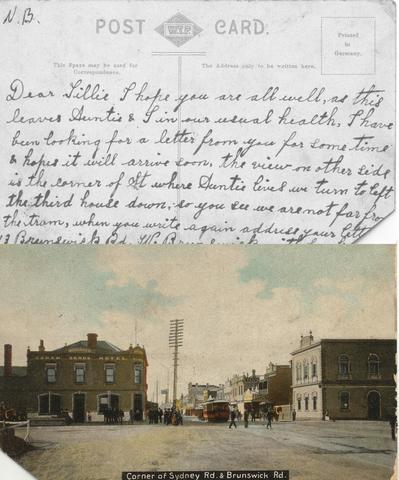 N.B.
POST CARD.
W.T.P.
Printed
in
Germany.
This Space may be used for
Correspondence.
The Address only to be written here.
Dear Lillie I hope you are all well, as this
leaves Auntie & I in our usual health, I have
been looking for a letter from you for some time
& hopes it will arrive soon, the view on other side
is the corner of St where Auntie lives we turn to left
the third house down, so you see we are not far from
the tram, when you write again address your
Brunswick Rd. W.
HOTEL
Corner of Sydney Rd. & Brunswick Rd.